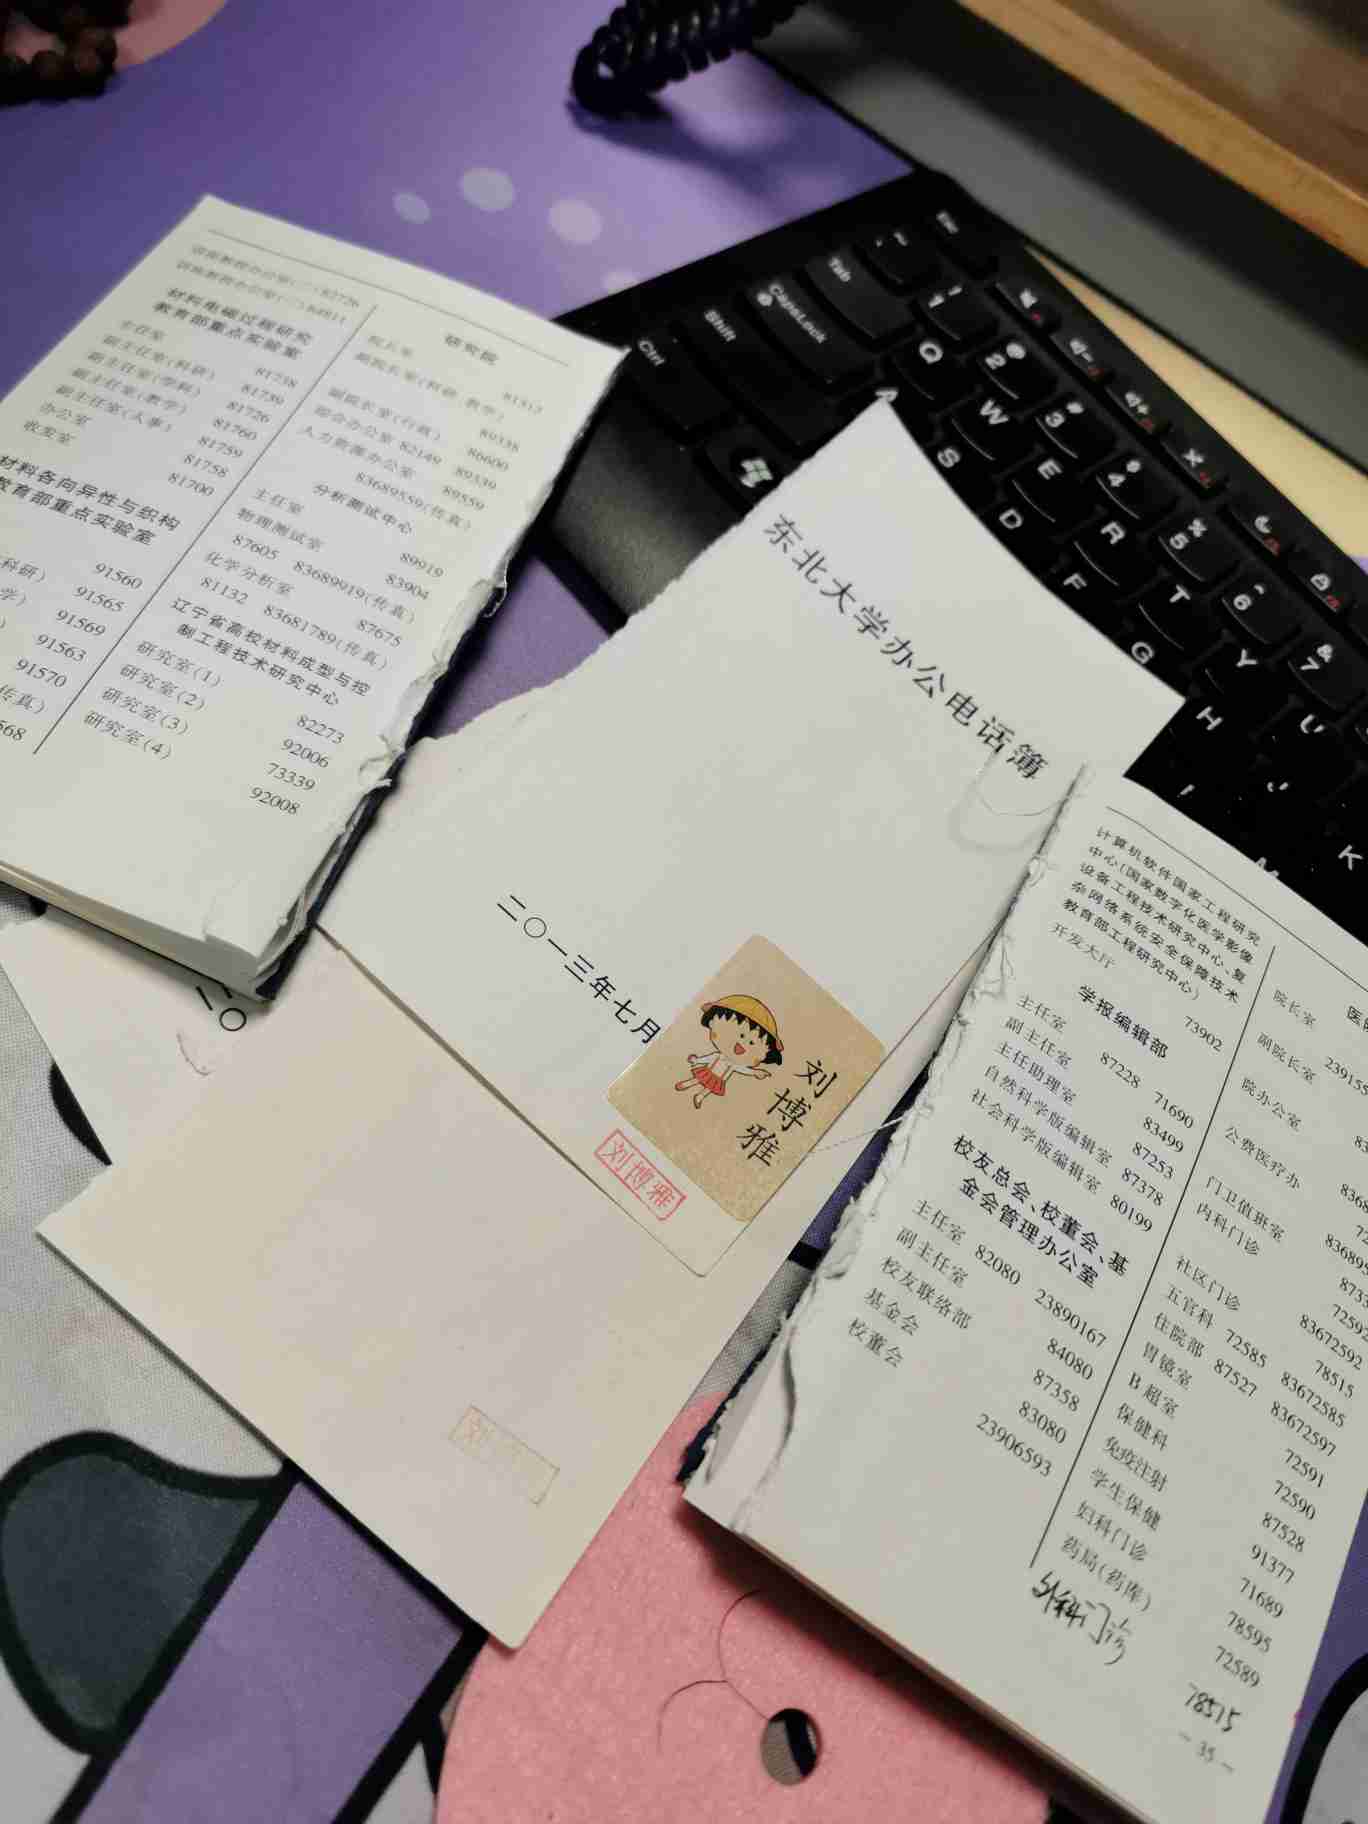 材料电磁过程研究
教育部重点实验室
主任室 81738
副主任室(科研) 81739
副主任室(学科) 81726
副主任室(教学) 81760
副主任室(人事) 81759
办公室 81758
收发室 81700
材料各向异性与织构
教育部重点实验室
91560
科研) 91565
学) 91569
) 91563
91570
传真)
568
研究院
院长室 81512
副院长室(科研 教学)
89338
副院长室(行政) 86600
综合办公室 82149 89539
人力资源办公室 89559
83689559(传真)
分析测试中心
主任室 89919
物理测试室 83904
87605 83689919(传真)
化学分析室 87675
81132 83681789(传真)
辽宁省高校材料成型与控
制工程技术研究中心
研究室(1) 82273
研究室(2) 92006
研究室(3) 73339
研究室(4) 92008
东北大学办公电话簿
二〇一三年七月
刘博雅
刘博雅
二〇
刘
计算机软件国家工程研究
中心(国家数字化医学影像
设备工程技术研究中心、复
杂网络系统安全保障技术
教育部工程研究中心)
开发大厅 73902
学报编辑部
主任室 87228 71690
副主任室 83499
主任助理室 87253
自然科学版编辑室 87378
社会科学版编辑室 80199
校友总会、校董会、基
金会管理办公室
主任室 82080 23890167
副主任室 84080
校友联络部 87358
基金会 83080
校董会 23906593
院长室
239155
副院长室
院办公室
公费医疗办
门卫值班室
内科门诊
社区门诊 83672592
五官科 72585 78515
住院部 87527 83672585
胃镜室 83672597
B超室 72591
保健科 72590
免疫注射 87528
学生保健 91377
妇科门诊 71689
药局(药库) 78595
72589
外科门诊 78515
- 35 -
Esc
~
Tab
CapsLock
Shift
Ctrl
1
2
3
4
5
6
7
Q
W
E
R
T
Y
U
A
S
D
F
G
H
J
K